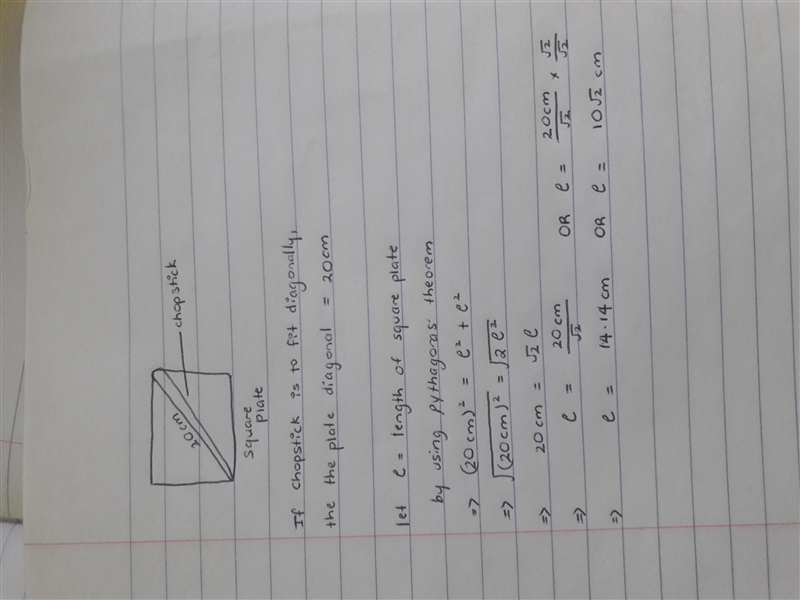 20cm
chopstick
square
plate
If chopstick is to fit diagonally,
the the plate diagonal = 20cm
let ℓ = length of square plate
by using pythagoras' theorem
=> (20cm)² = ℓ² + ℓ²
=> √(20cm)² = √2ℓ²
=> 20cm = √2 ℓ
=> ℓ = 20cm/√2 OR ℓ = 20cm/√2 × √2/√2
=> ℓ = 14.14cm OR ℓ = 10√2 cm